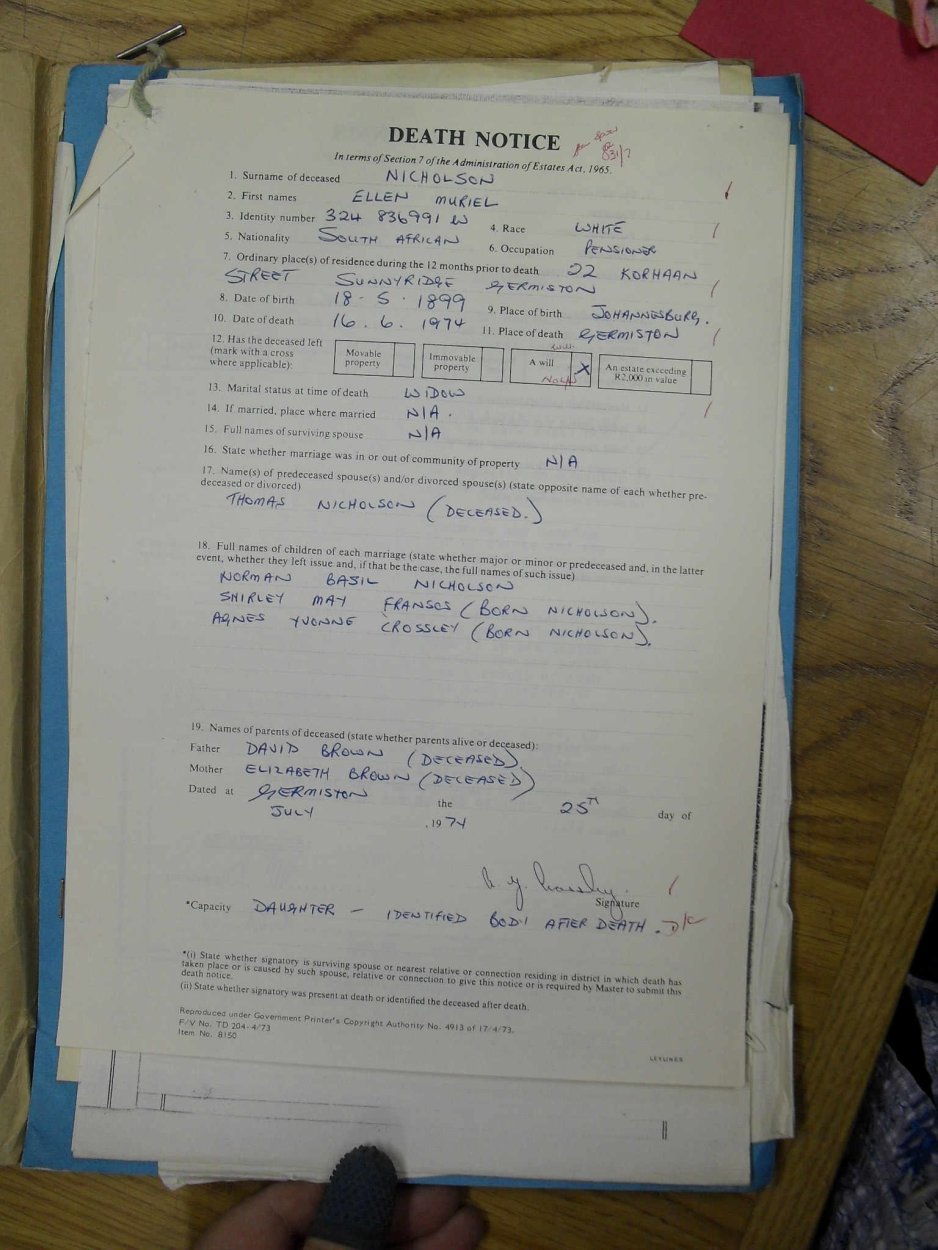 DEATH NOTICE
In terms of Section 7 of the Administration of Estates Act, 1965.
1. Surname of deceased NICHOLSON
2. First names ELLEN MURIEL
3. Identity number 324 836991 W 4. Race WHITE
5. Nationality SOUTH AFRICAN 6. Occupation PENSIONER
7. Ordinary place(s) of residence during the 12 months prior to death 22 KORHAAN
STREET SUNNYRIDGE GERMISTON
8. Date of birth 18 - 5 - 1899 9. Place of birth JOHANNESBURG.
10. Date of death 16. 6. 1974 11. Place of death GERMISTON
12. Has the deceased left
(mark with a cross
where applicable):
Movable
property
Immovable
property
A will X
An estate exceeding
R2,000 in value
13. Marital status at time of death WIDOW
14. If married, place where married N/A.
15. Full names of surviving spouse N/A
16. State whether marriage was in or out of community of property N/A
17. Name(s) of predeceased spouse(s) and/or divorced spouse(s) (state opposite name of each whether pre-
deceased or divorced)
THOMAS NICHOLSON (DECEASED.)
18. Full names of children of each marriage (state whether major or minor or predeceased and, in the latter
event, whether they left issue and, if that be the case, the full names of such issue)
NORMAN BASIL NICHOLSON
SHIRLEY MAY (BORN NICHOLSON).
AGNES YVONNE CROSSLEY (BORN NICHOLSON).
19. Names of parents of deceased (state whether parents alive or deceased):
Father DAVID BROWN (DECEASED)
Mother ELIZABETH BROWN (DECEASED)
Dated at GERMISTON the 25TH day of
JULY , 1974
Signature
*Capacity DAUGHTER — IDENTIFIED BODY AFTER DEATH.
*(i) State whether signatory is surviving spouse or nearest relative or connection residing in district in which death has
taken place or is caused by such spouse, relative or connection to give this notice or is required by Master to submit this
death notice.
(ii) State whether signatory was present at death or identified the deceased after death.
Reproduced under Government Printer's Copyright Authority No. 4913 of 17/4/73.
F/V No. TD 204-4/73
Item No. 8150
LEYLINES